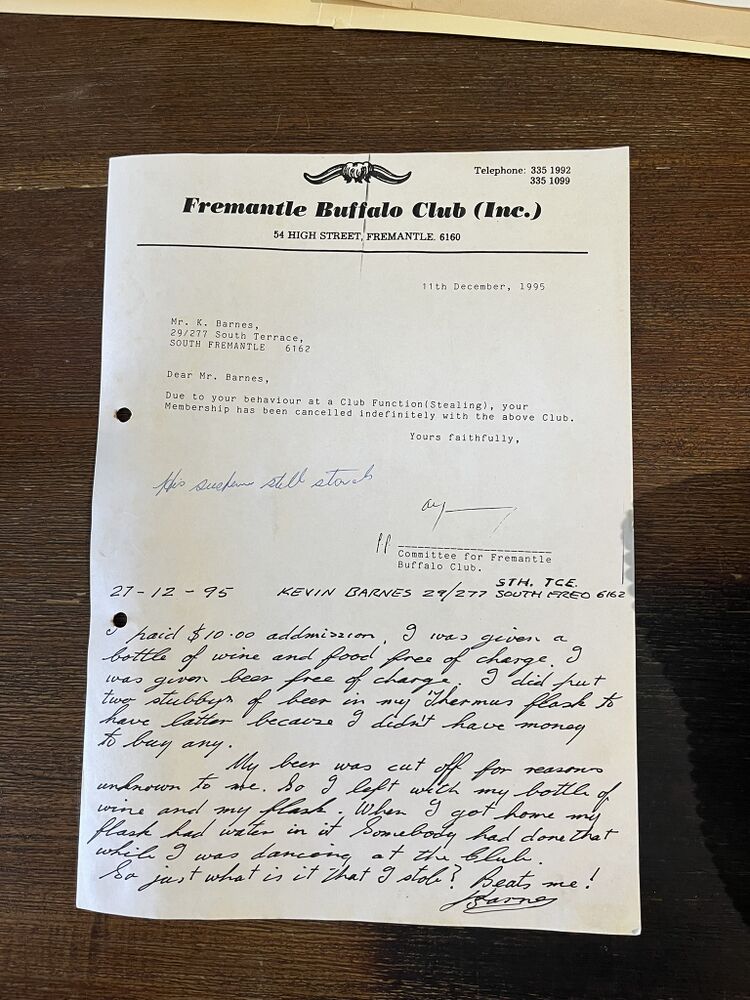 Telephone: 335 1992
335 1099
Fremantle Buffalo Club (Inc.)
54 HIGH STREET, FREMANTLE. 6160
11th December, 1995
Mr. K. Barnes,
29/277 South Terrace,
SOUTH FREMANTLE 6162
Dear Mr. Barnes,
Due to your behaviour at a Club Function(Stealing), your
Membership has been cancelled indefinitely with the above Club.
Yours faithfully,
His still stands
pp
Committee for Fremantle
Buffalo Club.
STH. TCE.
27-12-95 KEVIN BARNES 29/277 SOUTH FREO 6162
I paid $10.00 addmission, I was given a
bottle of wine and food free of charge. I
was given beer free of charge. I did put
two stubbys of beer in my Thermus flask to
have latter because I didn't have money
to buy any.
My beer was cut off for reasons
unknown to me. So I left with my bottle of
wine and my flask. When I got home my
flask had water in it Somebody had done that
while I was dancing at the Club.
So just what is it that I stole? Beats me!
KBarnes